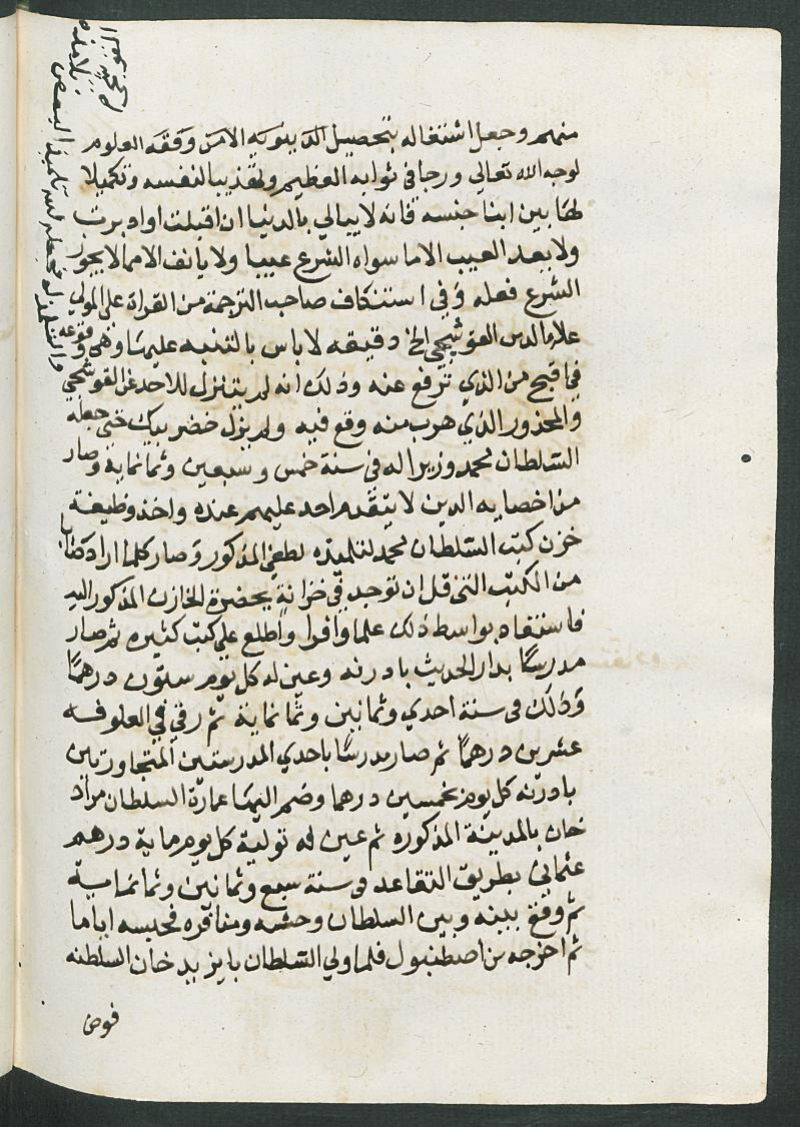 منهم وجعل اشتغاله بتحصيل الدينويه الامن وفقه العلوم
لوجه الله تعالي ورجا في ثوابه العظيم وتهذيبا لنفسه وتكميلا
لها بين ابنا جنسه فانه لا يبالي بالدنيا ان اقبلت او ادبرت
ولا يعد العيب الا ما سواه الشرع عيبا ولا يانف الا مما لا يجوز
الشرع فعله وفي استنكاف صاحب الترجمة من القراة علي المولي
علاء الدين القوشيجي الخ دقيقه لا باس بالتنبه عليها وهي وقوعه
في اقبح من الذي ترفع عنه وذلك انه لم يتنزل للاخذ عن القوشجي
والمحذور الذي هرب منه وقع فيه ولم يزل خضر بيك حتي جعله
السلطان محمد وزيرا له في سنة خمس وسبعين وثمانماية وصار
من اخصايه الدين لا يتقدم احد عليهم عنده واخذ وظيفة
خزن كتب السلطان محمد لتلميذه لطفي المذكور وصار كلما اراد كتابا
من الكتب التي قل ان توجد في خزانة يحضره الخازن المذكور اليه
فاستفاد بواسط ذلك علما وافرا واطلع علي كتب كثيره ثم صار
مدرسا بدار الحديث بادرنه وعين له كل يوم ستون درهما
وذلك في سنة احدي وثمانين وثمانماية ثم رقي في العلوفه
عشرين درهما ثم صار مدرسا باحدي المدرستين المتجاورتين
بادرنه كل يوم بخمسين درهما وضم اليها عمارة السلطان مراد
خان بالمدينة المذكوره ثم عين له تولية كل يوم ماية درهم
عثماني بطريق التقاعد في سنة سبع وثمانين وثمانماية
ثم وقع بينه وبين السلطان وحشه ومنافره فحبسه اياما
ثم اخرجه من اصطنبول فلما ولي السلطان بايزيد خان السلطنه
فوض